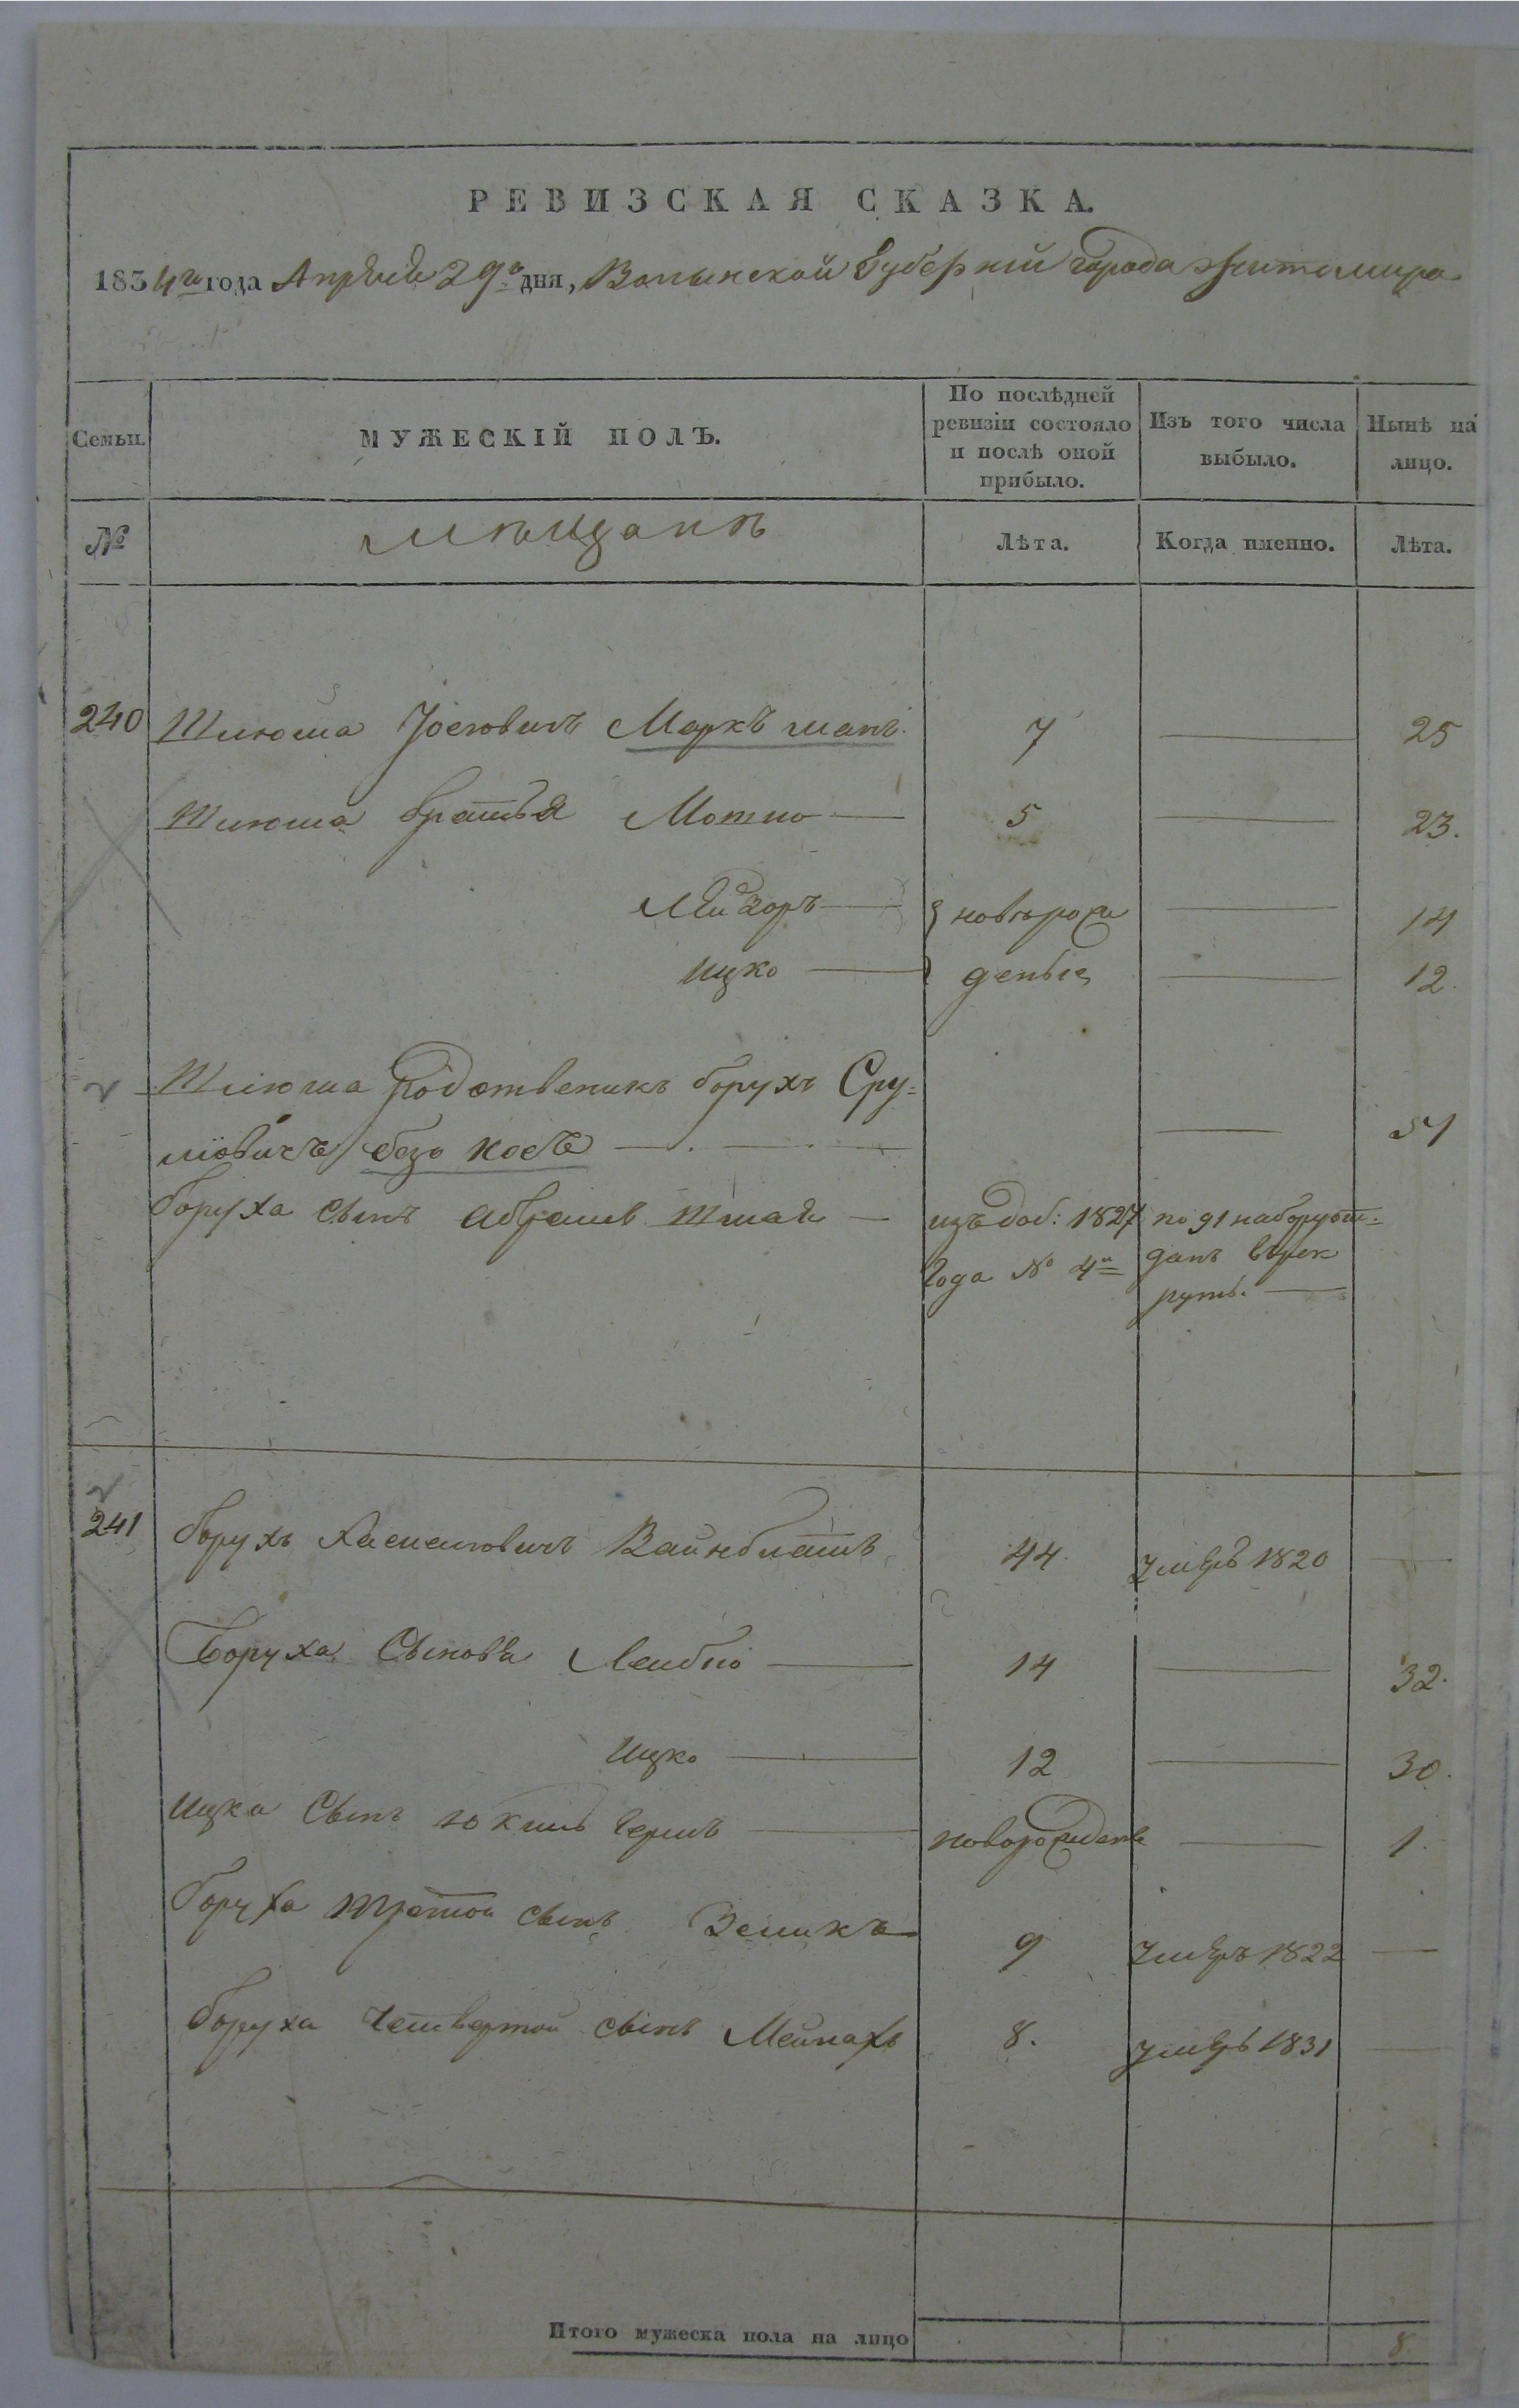 РЕВИЗСКАЯ СКАЗКА.
1834го года Апреля 29го дня, Волынской Губернїи города Житомира
Семьи.
МУЖЕСКІЙ ПОЛЪ.
По послѣдней
ревизіи состояло
и послѣ оной
прибыло.
Изъ того числа
выбыло.
Нынѣ на
лицо.
№
Мѣщанъ
Лѣта.
Когда именно.
Лѣта.
240 Шлюма Іосіовичъ Маркъманъ. 7 25
Шлюма братья Мотио 5 23.
Лейзоръ новърож 14
Ицко деные 12
Шлюма родственикъ борухъ Сру=
ліовичъ безо 51
боруха сынъ Абрамъ Шмая изъ доб: 1827 по 91 набору от=
года № 4й данъ върек
рутъ.
241 борухъ Вайнблатъ 44. умеръ 1820
Боруха Сыновя Лейбіо 14 32.
Ицко 12 30.
Ицка Сынъ Юкиль Гершъ новорожденъ 1.
боруха третой сынъ Зеликъ 9 умеръ 1822
боруха четвертой сынъ Мейнахъ 8. умеръ 1831
Итого мужеска пола на лицо 8